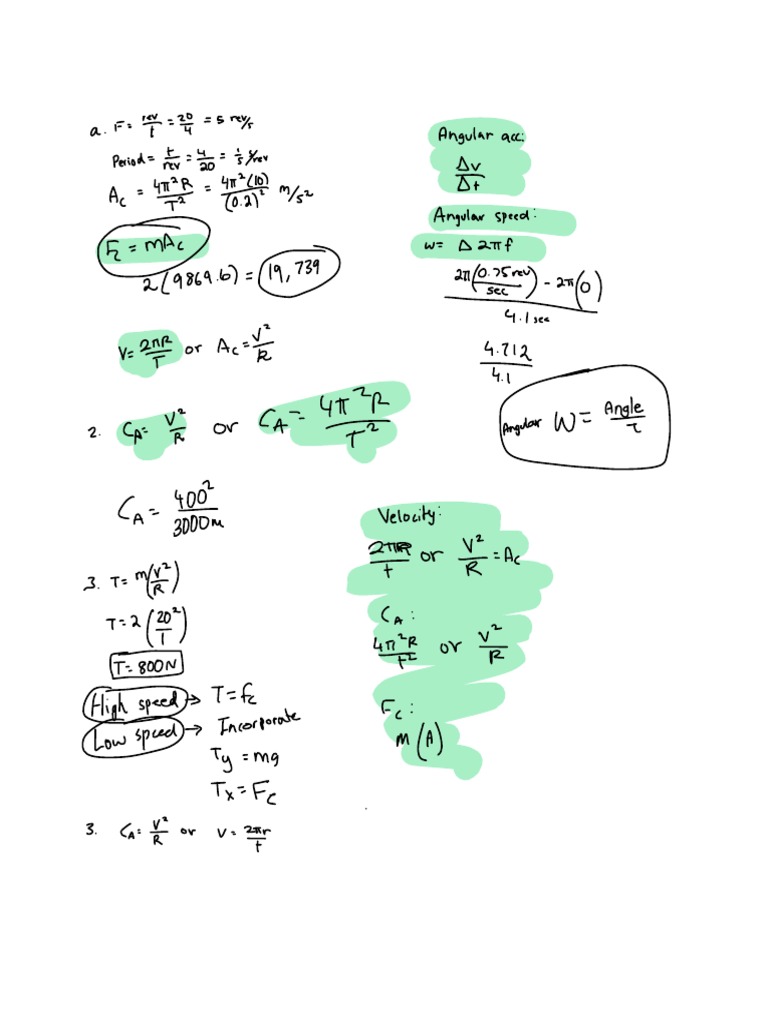 a. F = rev/t = 20/4 = 5 rev/s
Period = t/rev = 4/20 = 1/5 s/rev
Ac = 4π²R/T² = 4π²(10)/(0.2)² m/s²
Fc = mAc
2(9869.6) = 19,739
V = 2πR/T or Ac = V²/R
2. CA = V²/R or CA = 4π²R/T²
CA = 400²/3000m
3. T = m(V²/R)
T = 2(20²/1)
T = 800N
High speed → T = fc
Low speed → Incorporate
Ty = mg
Tx = Fc
3. CA = V²/R or V = 2πr/t
Angular acc:
Δv/Δt
Angular speed:
w = Δ2πf
2π(0.75rev/sec) - 2π(0)
4.1 sec
4.712
4.1
Angular W = Angle/τ
Velocity:
2πR/t or V²/R = Ac
CA:
4π²R/t² or V²/R
Fc:
m(A)